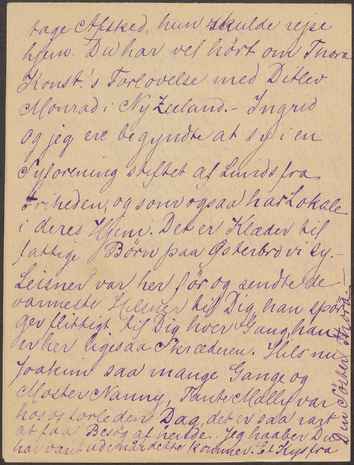 tage Afsked, hun skulde rejse
hjem. Du har vel hørt om Thora
Konst.'s Forlovelse med Ditlev
Monrad i Ny Zeeland. – Ingrid
og jeg ere begyndte at sy i en
Syforening stiftet af Lunds fra
Friheden, og som ogsaa har Lokale
i deres Hjem. Det er Klæder til
fattige Børn paa Østerbro vi sy. –
Leisner var her før og sendte de
varmeste Hilsner til Dig, han spør
ger flittigt til Dig hver Gang, han
er her ligesaa Skræderen. Hils nu
Joakum saa mange Gange og
Moster Nanny, Tante Møller var
hos os forleden Dag, det er saa rart
at faa Besøg af hende. Jeg haaber Du
har vant
kommer. Et Kys fra
Din Søster Thora. –